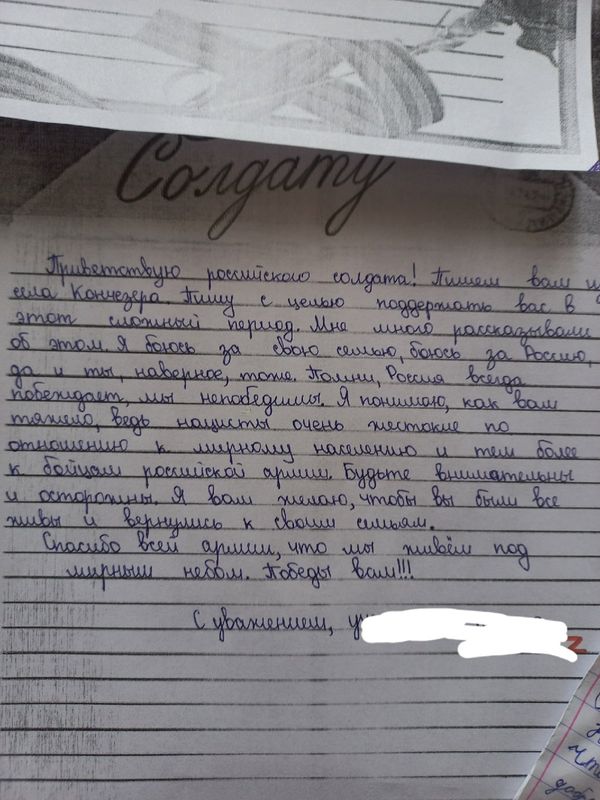 Солдату
Приветствую российского солдата! Пишем вам и
села Кончезера. Пишу с целью поддержать вас в
этот сложный период. Мне много рассказывали
об этом. Я боюсь за свою семью, боюсь за Россию,
да и ты, наверное, тоже. Помни, Россия всегда
побеждает, мы непобедимы. Я понимаю, как вам
тяжело, ведь нацисты очень жестокие по
отношению к мирному населению и тем более
к бойцам российской армии. Будьте внимательны
и осторожны. Я вам желаю, чтобы вы были все
живы и вернулись к своим семьям.
Спасибо всей армии, что мы живём под
мирным небом. Победы вам!!!
С уважением, у
z